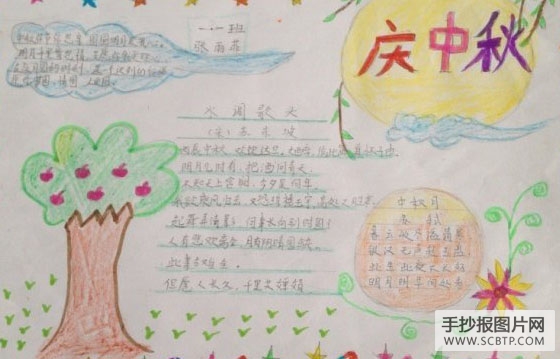 庆中秋
一一班
张雨菲
水调歌头
（宋）苏东坡
丙辰中秋，欢饮达旦，大醉，作此篇，兼怀子由。
明月几时有，把酒问青天。
不知天上宫阙，今夕是何年。
我欲乘风归去，又恐琼楼玉宇，高处不胜寒。
起舞弄清影，何事长向别时圆？
人有悲欢离合，月有阴晴圆缺，
此事古难全。
但愿人长久，千里共婵娟
中秋月
苏轼
暮云收尽溢清寒
银汉无声转玉盘
此生此夜不长好
明月明年何处看
手抄报图片网
WWW.SCBTP.COM